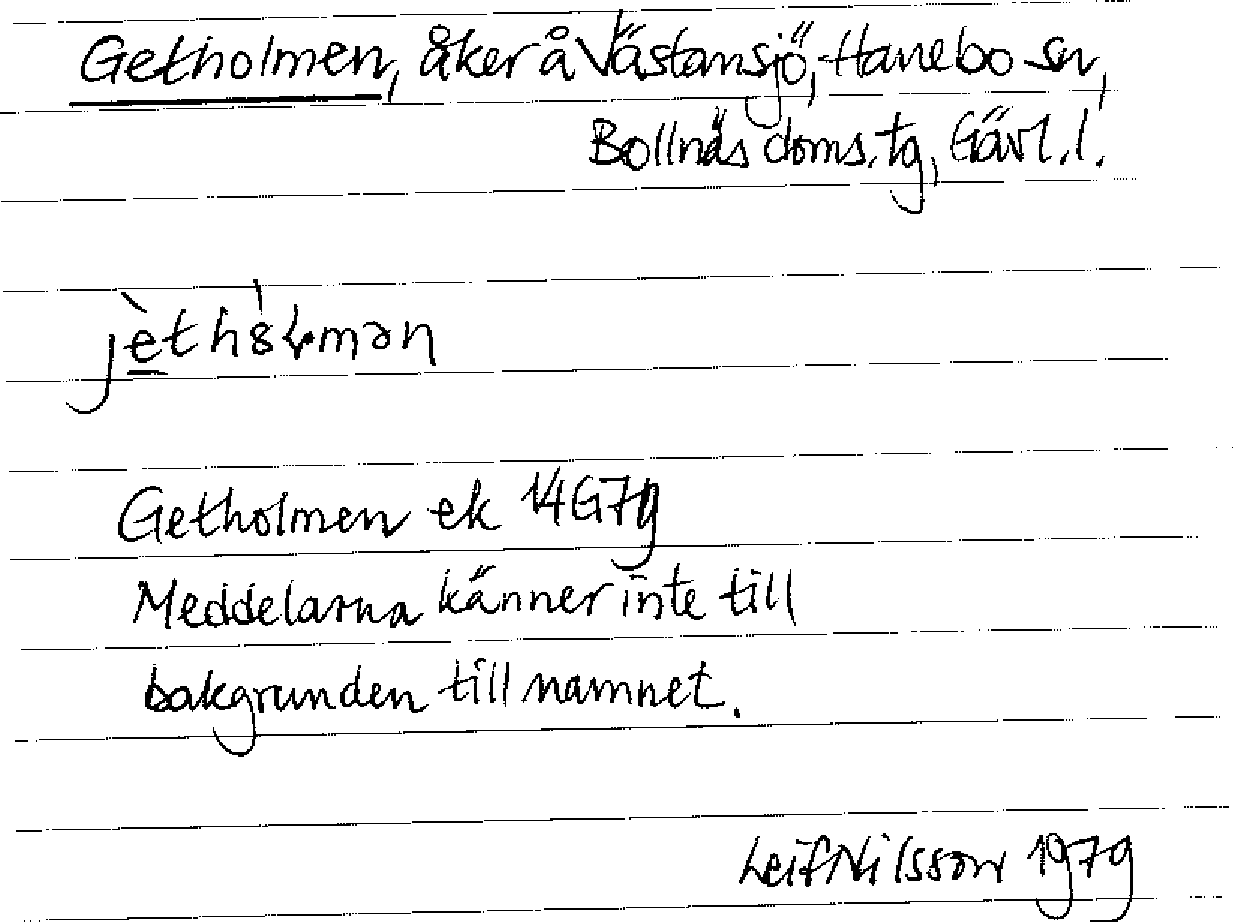 Getholmen, åker å Västansjö, Hanebo sn,
Bollnäs doms. tg, Gävl. l.
Getholmen ek 14G7g
Meddelarna känner inte till
bakgrunden till namnet.
Leif Nilsson 1979